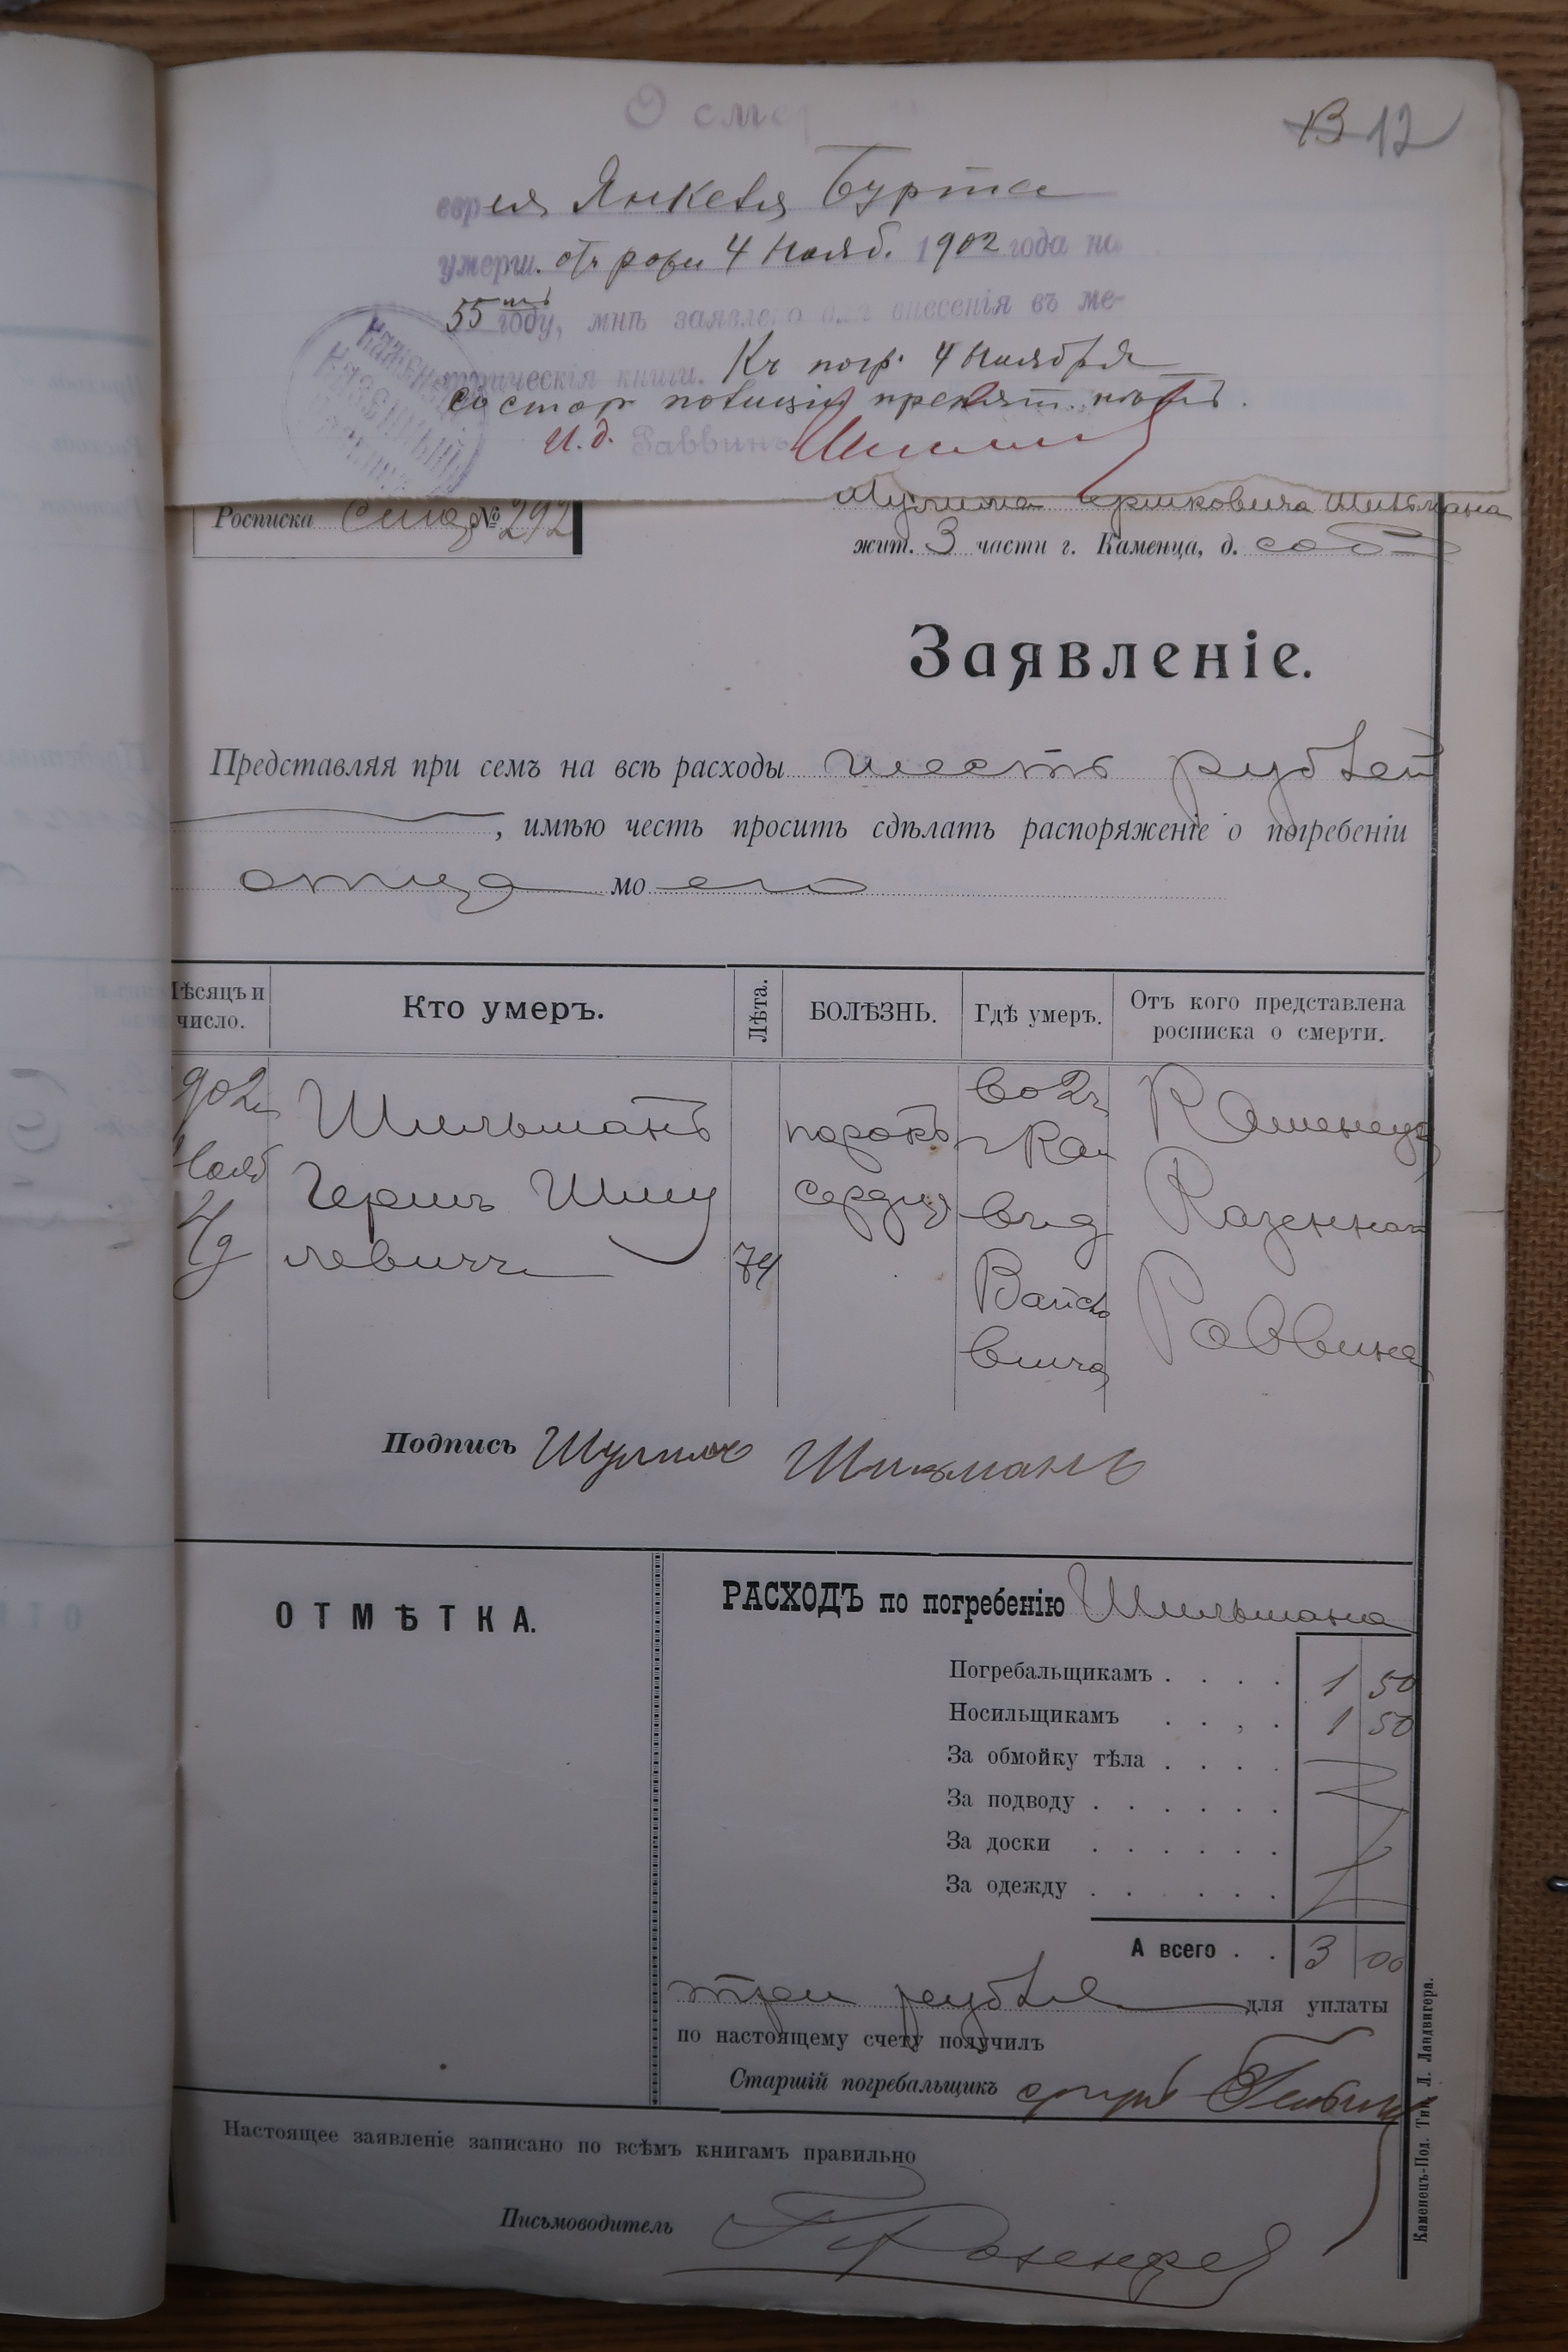 О сме
13 12
еврея Янкеля Бурта
умерш. отъ рожи 4 Нояб. 1902 года на
55 мъ году, мнѣ заявлено для внесенія въ ме-
трическія книги. Къ погр. 4 Ноября
со стор полиціи препят. нѣтъ.
И. д. Раввинъ
Росписка № 292
Шулима Гершковича Шильмана
жит. 3 части г. Каменца, д. соб
Заявленіе.
Представляя при семъ на всѣ расходы шесть рублей
, имѣю честь просить сдѣлать распоряженіе о погребеніи
отца моего
Мѣсяцъ и число.
Кто умеръ.
Лѣта.
БОЛѢЗНЬ.
Гдѣ умеръ.
Отъ кого представлена росписка о смерти.
902 г
Нояб
4/д
Шильманъ
Гершъ Шму
левичъ
74
порокъ
сердца
во 2 ч
г Кам
въ д
Вайсъ
вича
Каменецк
Казеннаг
Раввина
Подпись Шулимъ Шильманъ
ОТМѢТКА.
РАСХОДЪ по погребенію Шильмана
Погребальщикамъ . . . . 1 50
Носильщикамъ . . , . 1 50
За обмойку тѣла . . . .
За подводу . . . . . .
За доски . . . . . .
За одежду . . . . . .
А всего . . 3 00
три рубля для уплаты
по настоящему счету получилъ
Старшій погребальщикъ
Настоящее заявленіе записано по всѣмъ книгамъ правильно
Письмоводитель
Каменецъ-Под. Тип. Л. Ландвигера.